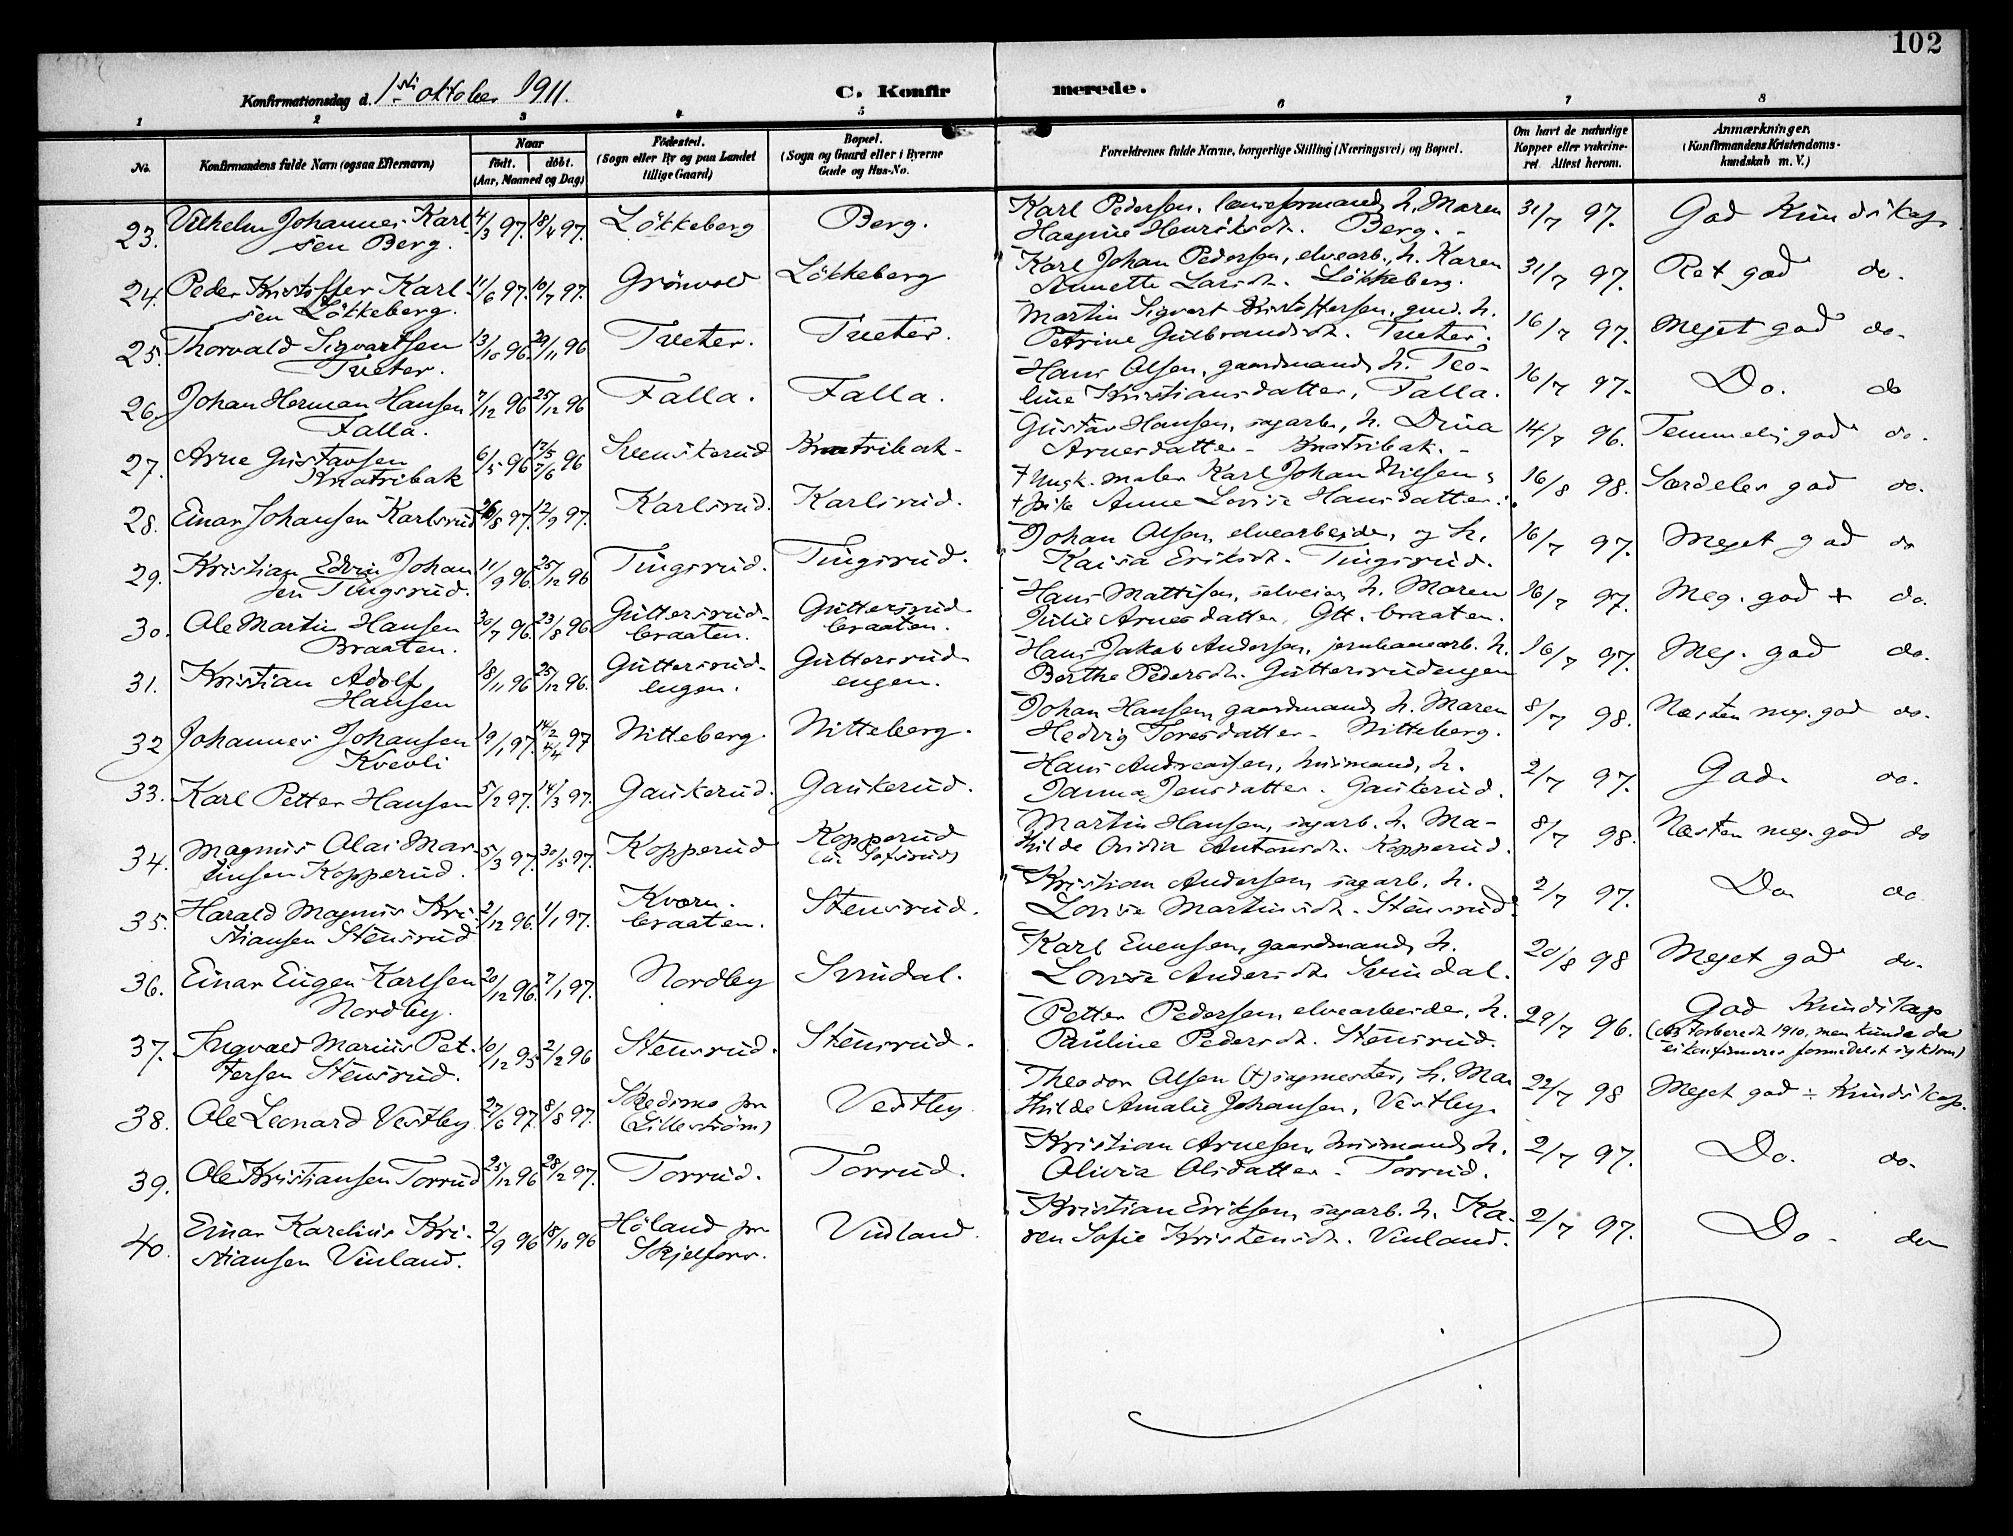 102
Konfirmationsdag d. 1ste oktober 1911.
C. Konfirmerede.
1 2 3 4 5 6 7 8
No. Konfirmandens fulde Navn (ogsaa Efternavn) Naar født. døbt. (Aar, Maaned og Dag) Fødested. (Sogn eller By og paa Landet tillige Gaard) Bopæl. (Sogn og Gaard eller i Byerne Gade og Hus-No. Forældrenes fulde Navne, borgerlige Stilling (Næringsvei) og Bopæl. Om havt de naturlige Kopper eller vakcineret. Attest herom. Anmærkninger. (Konfirmandens Kristendomskundskab m. V.)
23. Vilhelm Johannes Karl- 4/3 97. 18/4 97. Løkkeberg Berg. Karl Pedersen, h. Maren 31/7 97. God Kundskap.
sen Berg. Henriksdt. Berg.
24. Peder Kristoffer Karl- 11/6 97. 10/7 97. Grönvold Løkkeberg Karl Johan Pedersen, elvearb., h. Karen 31/7 97. Ret god do.
sen Løkkeberg. Annette Larsdt. Løkkeberg.
25. Thorvald Sigvartsen 13/10 96. 29/11 96 Tveter. Tveter. Martin Sigvart Kristoffersen, gmd. h. 16/7 97. Meget god do.
Tveter. Petrine Gulbrandsdt. Tveter.
26. Johan Herman Hansen 7/12 96 25/12 96 Falla. Falla. Hans Olsen, gaardmand, h. Teo- 16/7 97. Do. do
Falla. line Kristiansdatter, Falla.
27. Arne Gustavsen 6/5 96 17/5 7/6 96 Svenskerud Knatribak. Gustav Hansen, sagarb., h. Dina 14/7 96. Temmelig god do.
Knatribak Arnesdatter. Knatribak.
28. Einar Johansen Karlsrud 26/8 97. 12/9 97. Karlsrud. Karlsrud. + Ungk. maler Karl Johan Nilsen, 16/8 98. Særdeles god do.
+ pike Anne Lovise Hansdatter.
29. Kristian Edvin Johan 11/9 96. 25/12 96 Tingsrud. Tingsrud. Johan Olsen, elvearbeider, og h. 16/7 97. Meget god do
sen Tingsrud. Kaisa Eriksdt. Tingsrud.
30. Ole Martin Hansen 30/7 96. 23/8 96 Guttersrud- Guttersrud- Hans Mattisen, selveier, h. Maren 16/7 97. Meg. god + do.
Braaten. braaten. braaten. Julie Arnesdatter, Gtt. braaten.
31. Kristian Adolf 18/11 96 25/12 96. Guttersrud- Guttersrud- Hans Jakob Andersen, jernbanearb. h. 16/7 97. Meg. god do.
Hansen engen. engen. Berthe Pedersdt. Guttersrudengen
32 Johannes Johansen 19/1 97. 14/2 4/4 97 Nitteberg. Nitteberg. Johan Hansen, gaardmand, h. Maren 8/7 98. Næsten meg. god do.
Kvevli Hedvig Toresdatter. Nitteberg.
33. Karl Petter Hansen 5/2 97. 14/3 97. Gaukerud. Gaukerud. Hans Andreassen, husmand, h. 2/7 97. God. do.
Janna Jensdatter. Gaukerud.
34. Magnus Olai Mar 5/3 97. 30/5 97. Kopperud Kopperud Martin Hansen, sagarb. h. Ma- 8/7 98. Næsten meg. god do
tinsen Kopperud. thilde Ovidia Antonsdt. Kopperud.
35. Harald Magnus Kri- 2/12 96. 1/1 97. Kværn- Stensrud. Kristian Andersen, sagarb. h. 2/7 97. Do. do
stiansen Stensrud braaten. Lovise Martinsdt. Stensrud.
36. Einar Eugen Karlsen 20/12 96. 7/1 97. Nordby Svindal. Karl Evensen, gaardmand, h. 20/8 98 Meget god do.
Nordby. Lovise Andersdt. Svindal.
37. Ingvald Marius Pet- 10/12 95 2/2 96 Stensrud. Stensrud. Petter Pedersen, elvearbeider, h. 29/7 96. God Kundskap
tersen Stensrud. Pauline Pedersdt. Stensrud. (forberedt 1910, men kunde da
ei konfirmeres formedelst sykdom)
38. Ole Leonard Vestby 27/6 97. 8/8 97. Skedsmo pr Vestby Theodor Olsen (+) sagmester, h. Ma 22/7 98 Meget god ÷ Kundskap.
(Lillestrøm) thilde Amalie Johansen, Vestby.
39. Ole Kristiansen Torrud 25/12 96 28/2 97. Torrud. Torrud. Kristian Arnesen, husmand, h. 2/7 97. Do. do.
Olivia Olsdatter. Torrud.
40. Einar Karelius Kri- 2/9 96 18/10 96 Høland pr Vinland. Kristian Eriksen, sagarb. h. Ka- 2/7 97. Do. do
stiansen Vinland. Skjelfoss. ren Sofie Kristensdt. Vinland.